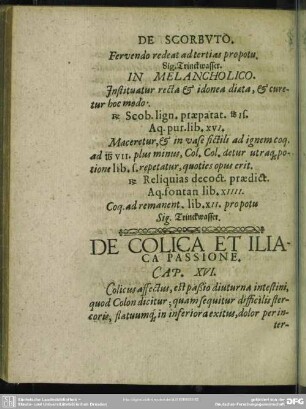 DE SCORBVTO.
Fervendo redeat ad tertias propotu.
Sig. Trinckwasser.
IN MELANCHOLICO.
Instituatur recta & idonea diæta, & cure-
tur hoc modo.
℞ Scob. lign. præparat. ℔ iſ.
Aq. pur. lib. xvj.
Maceretur, & in vase fictili ad ignem coq.
ad ℔ VII. plus minus, Col. Col. detur utraq; po-
tione lib. ſ. repetatur, quoties opus erit.
℞ Reliquias decoct. prædict.
Aq. fontan lib. XIIII.
Coq. ad remanent. lib. XII. propotu
Sig. Trinckwasser.
DE COLICA ET ILIA-
CA PASSIONE.
CAP. XVI.
Colicus affectus, est passio diuturna intestini,
quod Colon dicitur; quam sequitur difficilis ster-
coris, flatuumq; in inferiora exitus, dolor per in-
ter-